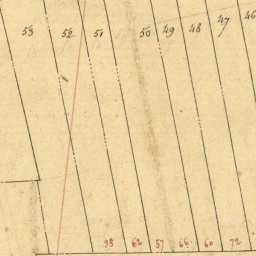 53 52 51 50 49 48 47 46
98 62 57 66 60 72